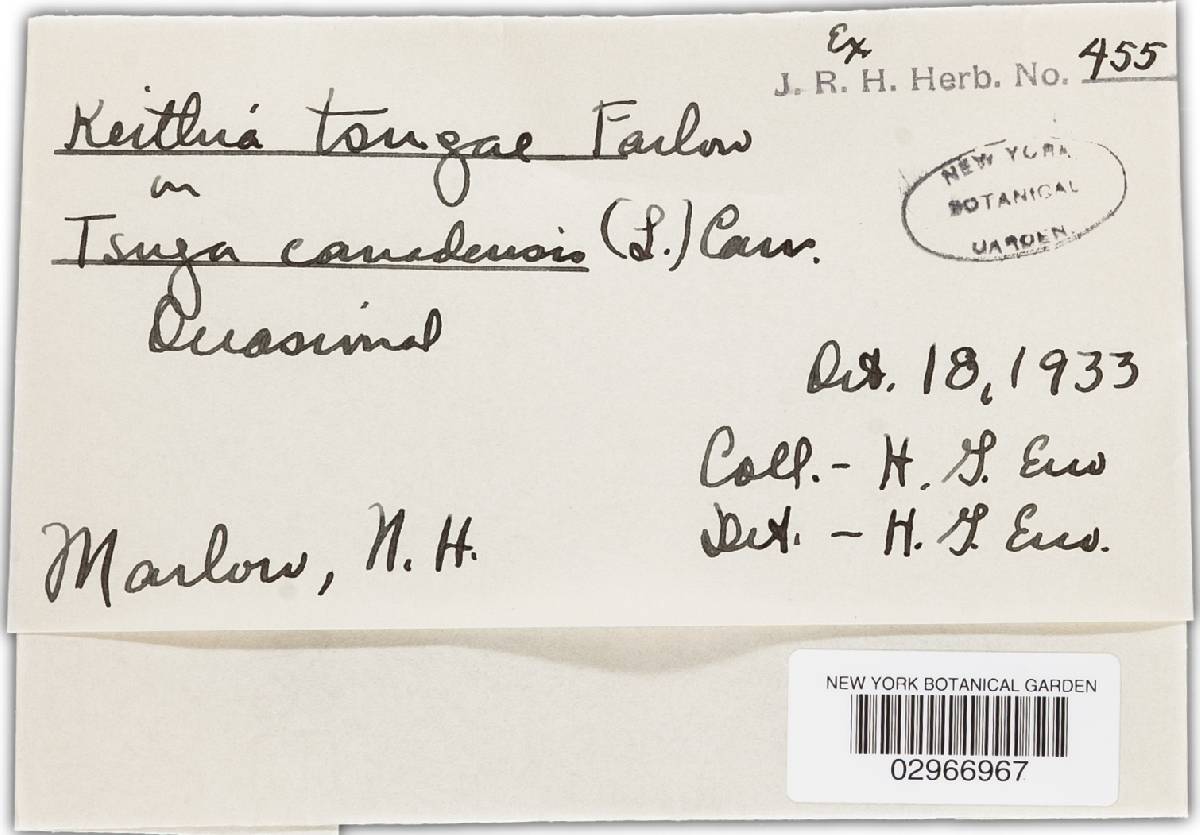 Ex
J. R. H. Herb. No. 455
Keithia tsugae Farlow
on
Tsuga canadensis (L.) Carr.
Occasional
NEW YORK
BOTANICAL
GARDEN
Oct. 18, 1933
Coll. - H. G. Eno
Det. - H. G. Eno.
Marlow, N. H.
NEW YORK BOTANICAL GARDEN
02966967